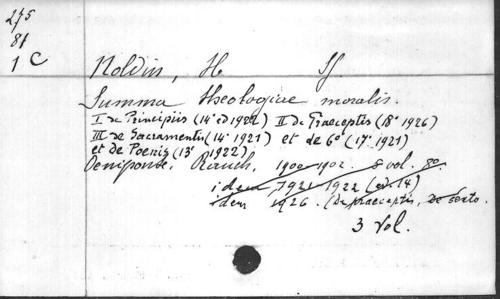 275
81
1 C
Noldin, H SJ.
Summa theologiae moralis.
I de Principiis (14ª ed 1922) II de Praeceptis (18ª 1926)
III de Sacramentis (14ª 1921) et de 6º (17ª 1921)
et de Poenis (13ª 1922)
Oeniponte. Rauch, 1900-1902. vol. 8º.
idem, 1921-1922 (ed. 14)
idem 1926. (de praeceptis, de sexto.
3 vol.